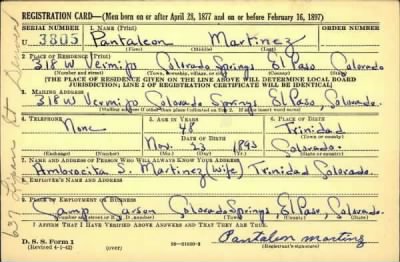 REGISTRATION CARD—(Men born on or after April 28, 1877 and on or before February 16, 1897)
SERIAL NUMBER 1. NAME (Print) ORDER NUMBER
U 3805 Pantaleon Martinez
(First) (Middle) (Last)
2. PLACE OF RESIDENCE (Print)
318 W Vermijo Colorado Springs El Paso, Colorado
(Number and street) (Town, township, village, or city) (County) (State)
[THE PLACE OF RESIDENCE GIVEN ON THE LINE ABOVE WILL DETERMINE LOCAL BOARD
JURISDICTION; LINE 2 OF REGISTRATION CERTIFICATE WILL BE IDENTICAL]
3. MAILING ADDRESS
318 W Vermijo Colorado Springs El Paso, Colorado
[Mailing address if other than place indicated on line 2. If same insert word same]
4. TELEPHONE 5. AGE IN YEARS 6. PLACE OF BIRTH
None 48 Trinidad
DATE OF BIRTH (Town or county)
Nov. 23 1893 Colorado.
(Exchange) (Number) (Mo.) (Day) (Yr.) (State or country)
7. NAME AND ADDRESS OF PERSON WHO WILL ALWAYS KNOW YOUR ADDRESS
Ambrocita S. Martinez (wife) Trinidad Colorado.
8. EMPLOYER'S NAME AND ADDRESS
9. PLACE OF EMPLOYMENT OR BUSINESS
Camp Carson Colorado Springs, El Paso, Colorado.
(Number and street or R. F. D. number) (Town) (County) (State)
I AFFIRM THAT I HAVE VERIFIED ABOVE ANSWERS AND THAT THEY ARE TRUE.
D. S. S. Form 1
(Revised 4-1-42) (over) Pantalion Martinez
(Registrant's signature)
637